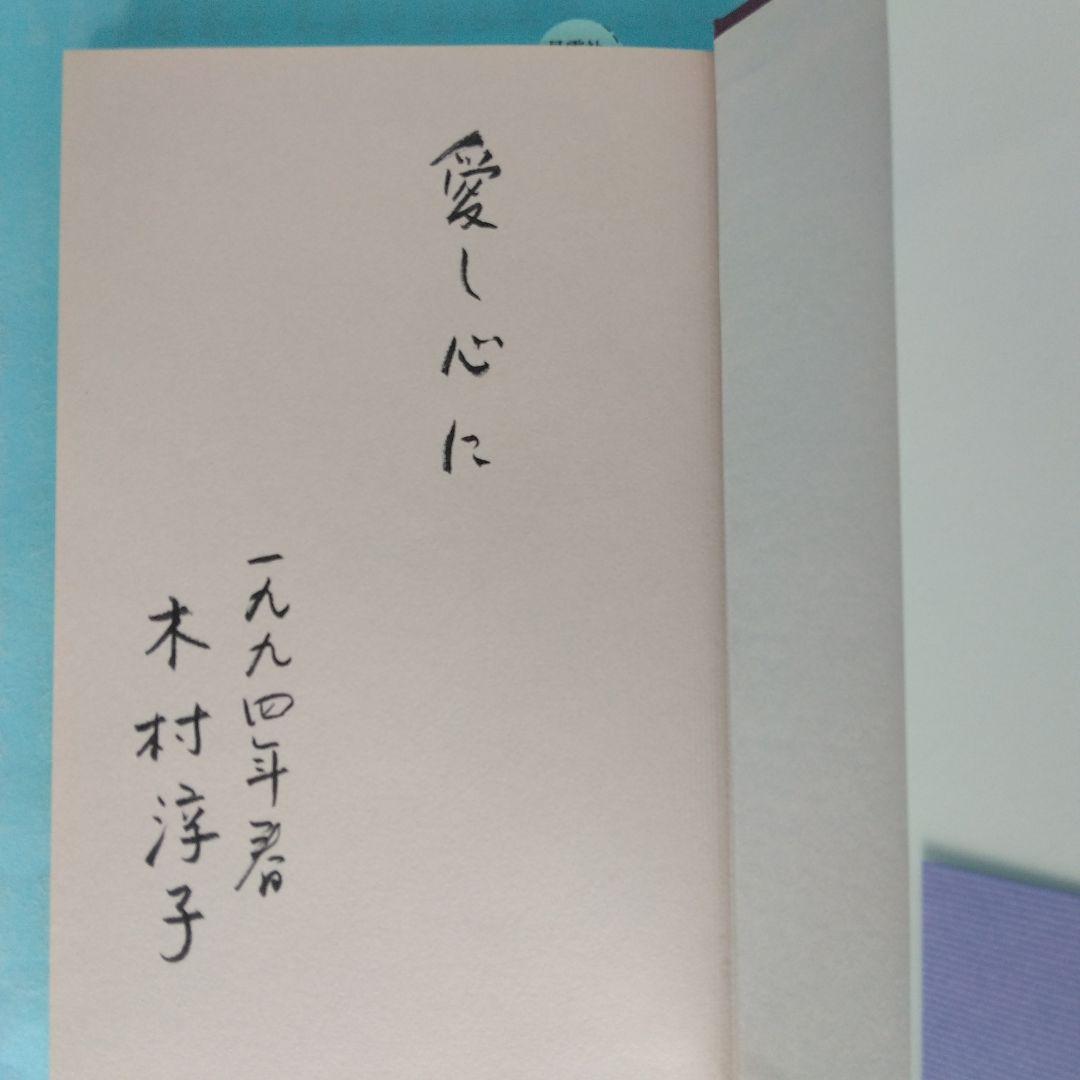 愛し心に
一九九四年春
木村淳子